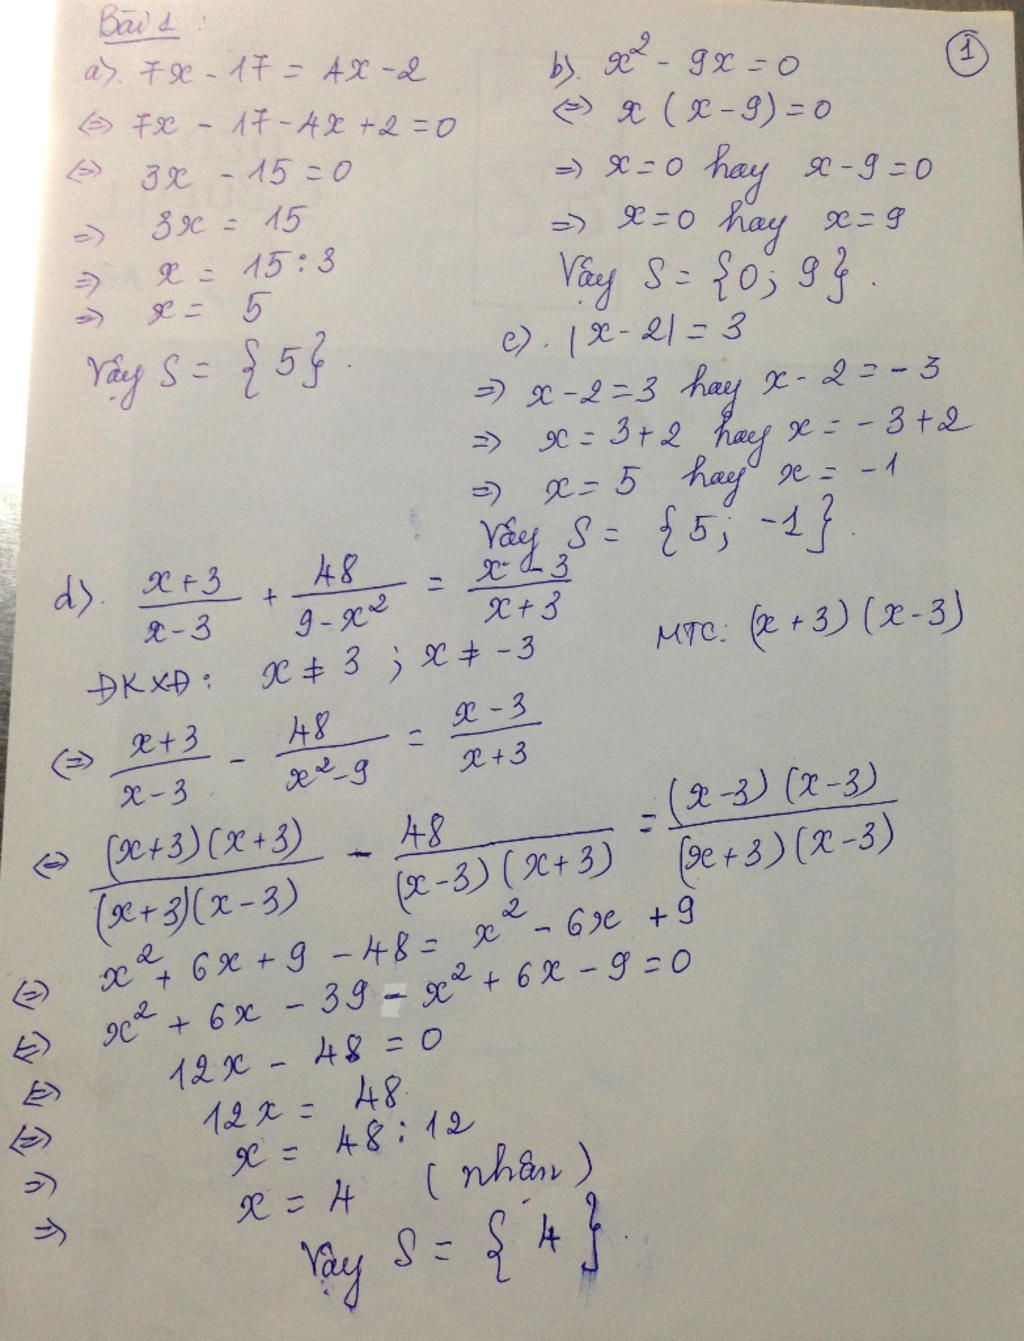 Bài 1 :
a). 7x - 17 = 4x - 2
⇔ 7x - 17 - 4x + 2 = 0
⇔ 3x - 15 = 0
⇒ 3x = 15
⇒ x = 15 : 3
⇒ x = 5
Vậy S = {5}.
1
b). x² - 9x = 0
⇔ x (x - 9) = 0
⇒ x = 0 hay x - 9 = 0
⇒ x = 0 hay x = 9
Vậy S = {0; 9}.
c). |x - 2| = 3
⇒ x - 2 = 3 hay x - 2 = - 3
⇒ x = 3 + 2 hay x = - 3 + 2
⇒ x = 5 hay x = - 1
Vậy S = {5; -1}.
d). (x + 3)/(x - 3) + 48/(9 - x²) = (x - 3)/(x + 3)
MTC: (x + 3) (x - 3)
ĐKXĐ: x ≠ 3 ; x ≠ - 3
⇔ (x + 3)/(x - 3) - 48/(x² - 9) = (x - 3)/(x + 3)
⇔ (x + 3)(x + 3)/(x + 3)(x - 3) - 48/(x - 3)(x + 3) = (x - 3)(x - 3)/(x + 3)(x - 3)
⇔ x² + 6x + 9 - 48 = x² - 6x + 9
⇔ x² + 6x - 39 - x² + 6x - 9 = 0
⇔ 12x - 48 = 0
⇔ 12x = 48
⇒ x = 48 : 12
⇒ x = 4 (nhận)
Vậy S = {4}.